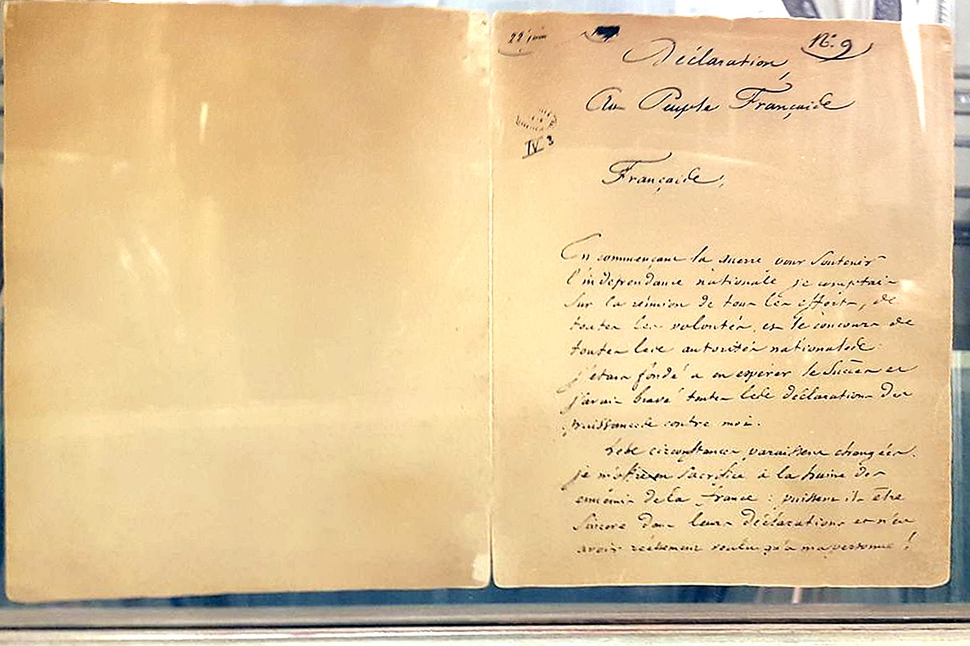 22 juin
N.º 9
Déclaration,
Au Peuple Français
IV 3
Français,
En commençant la guerre pour soutenir
l'indépendance nationale, je comptais
sur la réunion de tous les efforts, de
toutes les volontés, et le concours de
toutes les autorités nationales.
j'étais fondé a en espérer le succès et
j'avais bravé toutes les déclarations des
puissances contre moi.
Les circonstances paraissent changées.
je m'offre en sacrifice à la haine des
ennemis de la france : puissent ils être
sincères dans leurs déclarations et n'en
avoir réelement voulu qu'à ma personne !